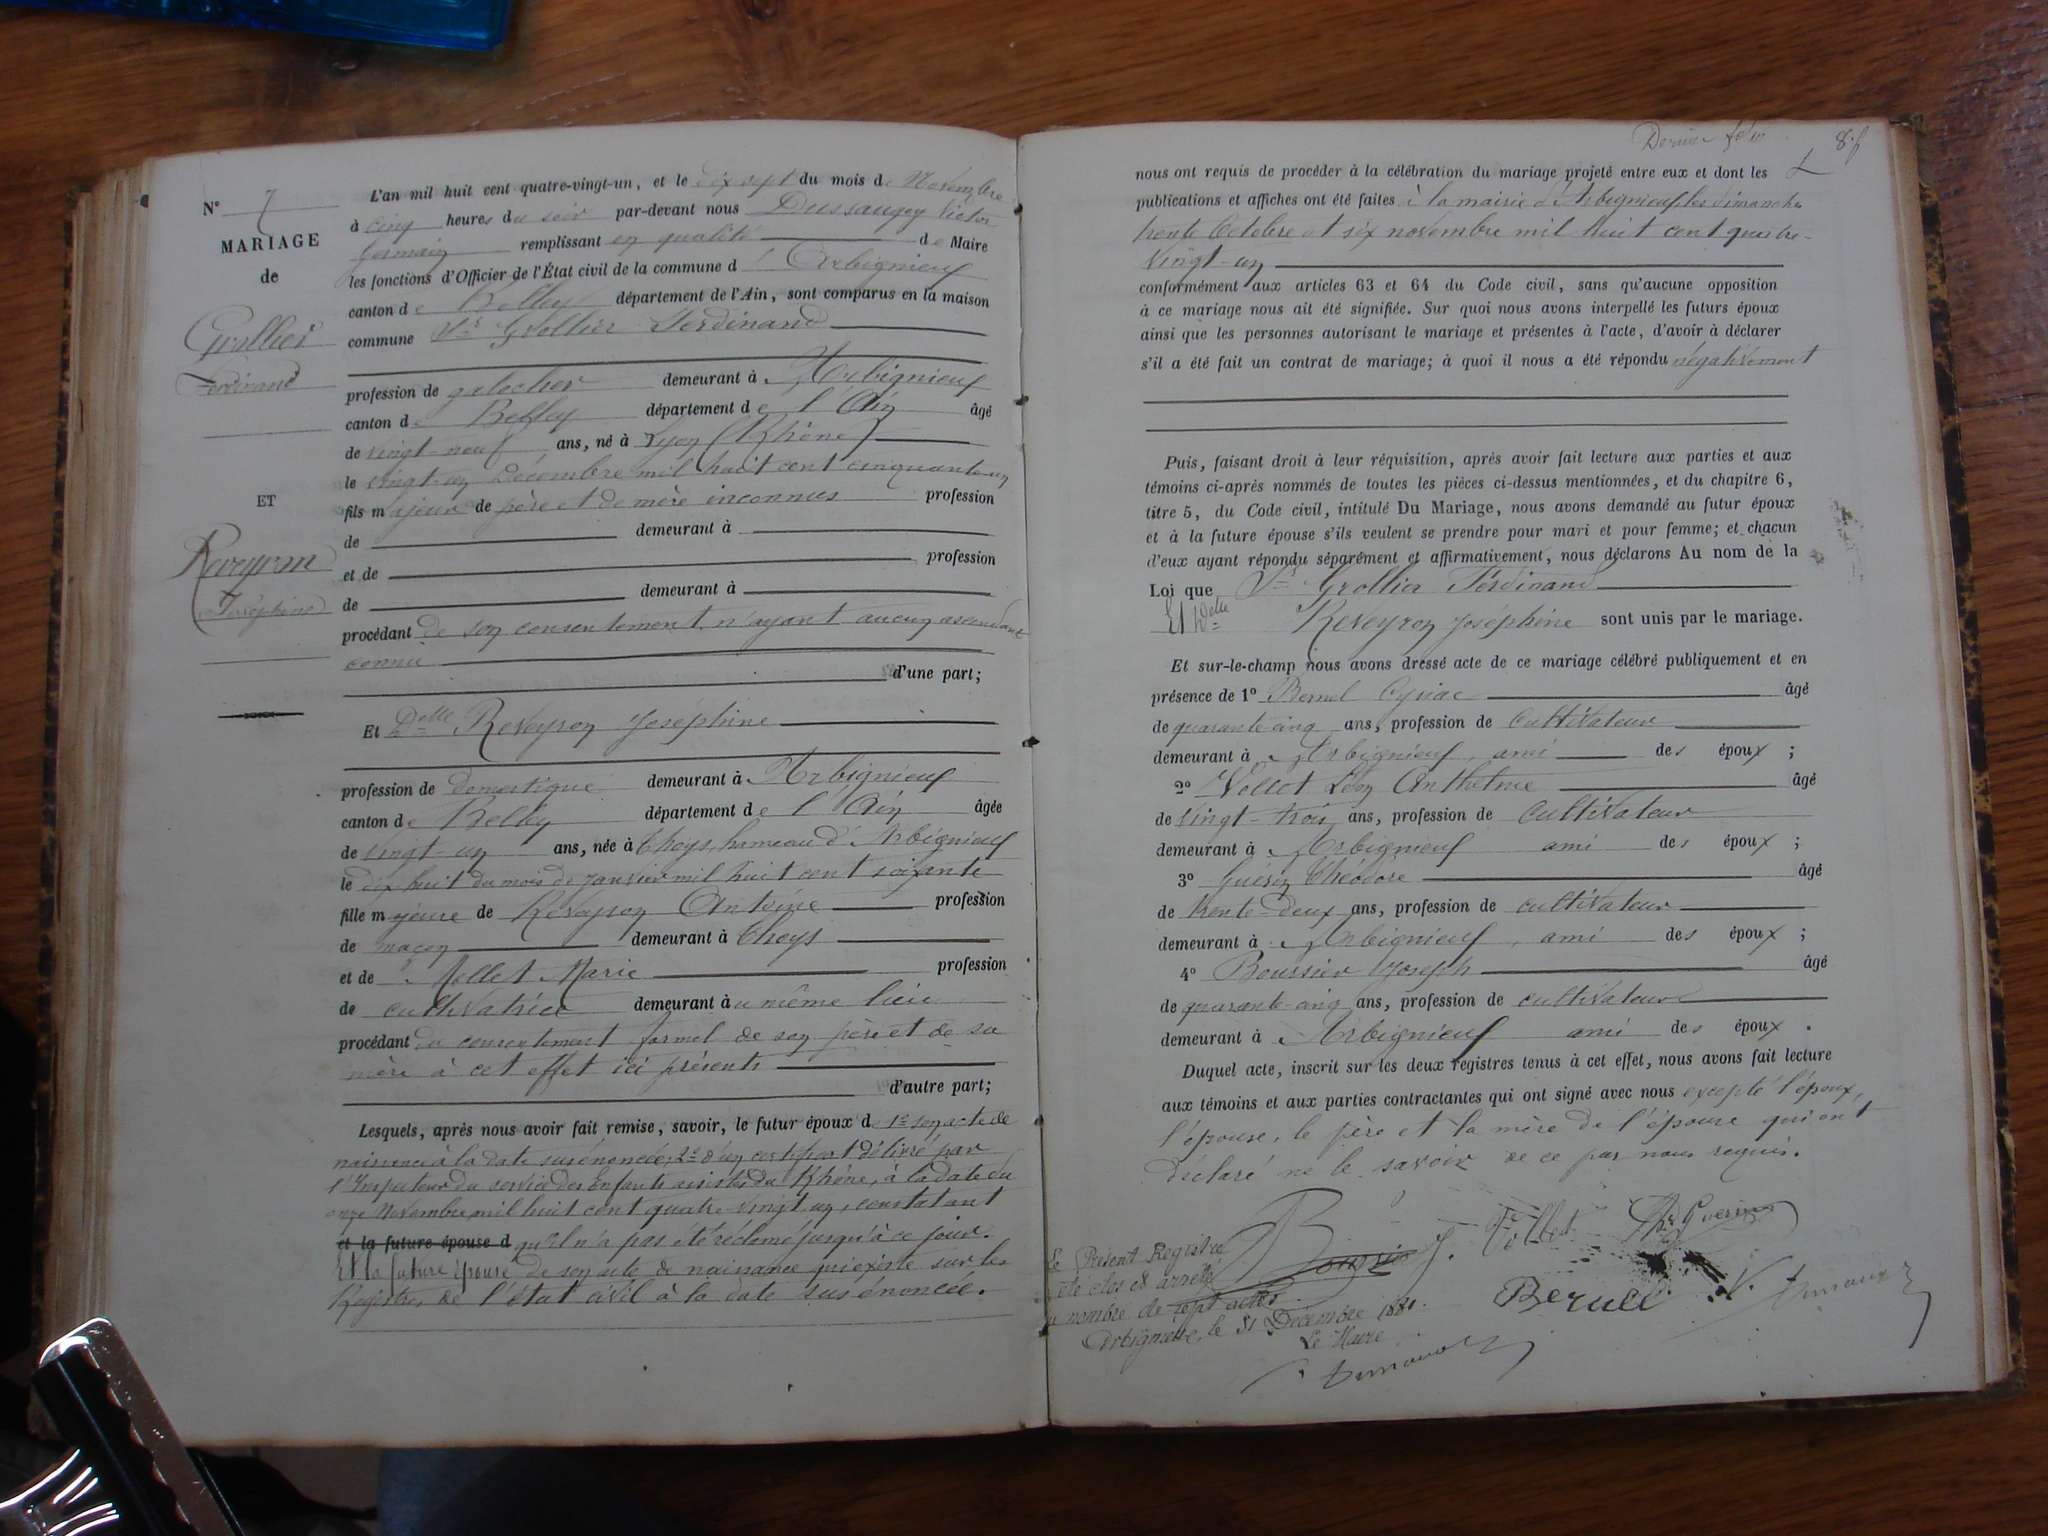 N° 7
MARIAGE
de
Grollier
Ferdinand
ET
Reveyron
Joséphine
L'an mil huit cent quatre-vingt-un, et le dix sept du mois de Novembre
à cinq heures du soir par-devant nous Dussaugey Victor
Germain remplissant en qualité de Maire
les fonctions d'Officier de l'État civil de la commune d' Arbignieu
canton de Belley département de l'Ain, sont comparus en la maison
commune Sr Grollier Ferdinand
profession de galocher demeurant à Arbignieu
canton de Belley département de l'Ain âgé
de vingt-neuf ans, né à Lyon (Rhône)
le vingt-un Décembre mil huit cent cinquante-un
fils majeur de père et de mère inconnus profession
de demeurant à
et de profession
de demeurant à
procédant de son consentement n'ayant aucun ascendant
connu
d'une part;
Et Delle Reveyron Joséphine
profession de domestique demeurant à Arbignieu
canton de Belley département de l'Ain âgée
de vingt-un ans, née à Thoys, hameau d'Arbignieu
le dix huit du mois de janvier mil huit cent soixante
fille majeure de Réveyron Antoine profession
de maçon demeurant à Thoys
et de Mollet Marie profession
de cultivatrice demeurant au même lieu
procédant du consentement formel de son père et de sa
mère à cet effet ici présents
d'autre part;
Lesquels, après nous avoir fait remise, savoir, le futur époux de 1° son acte de
naissance à la date susénoncée, 2° d'un certificat délivré par
l'Inspecteur du service des Enfants assistés du Rhône, à la date du
onze Novembre mil huit cent quatre-vingt un, constatant
et la future épouse d qu'il n'a pas été réclamé jusqu'à ce jour.
Et la future épouse de son acte de naissance qui existe sur les
Registres de l'état civil à la date susénoncée.
Dernier folio 8.f
nous ont requis de procéder à la célébration du mariage projeté entre eux et dont les
publications et affiches ont été faites à la mairie d'Arbignieu, les dimanche
trente Octobre et six novembre mil huit cent quatre-
vingt-un
conformément aux articles 63 et 64 du Code civil, sans qu'aucune opposition
à ce mariage nous ait été signifiée. Sur quoi nous avons interpellé les futurs époux
ainsi que les personnes autorisant le mariage et présentes à l'acte, d'avoir à déclarer
s'il a été fait un contrat de mariage; à quoi il nous a été répondu négativement
Puis, faisant droit à leur réquisition, après avoir fait lecture aux parties et aux
témoins ci-après nommés de toutes les pièces ci-dessus mentionnées, et du chapitre 6,
titre 5, du Code civil, intitulé Du Mariage, nous avons demandé au futur époux
et à la future épouse s'ils veulent se prendre pour mari et pour femme; et chacun
d'eux ayant répondu séparément et affirmativement, nous déclarons Au nom de la
Loi que Sr Grollier Ferdinand
Et Delle Reveyron Joséphine sont unis par le mariage.
Et sur-le-champ nous avons dressé acte de ce mariage célébré publiquement et en
présence de 1° Bernel Cyriac âgé
de quarante-cinq ans, profession de cultivateur
demeurant à Arbignieu, ami des époux ;
2° Vollet Léon Anthelme âgé
de vingt-trois ans, profession de cultivateur
demeurant à Arbignieu ami des époux ;
3° Guérin Théodore âgé
de trente-deux ans, profession de cultivateur
demeurant à Arbignieu, ami des époux ;
4° Boussier Joseph âgé
de quarante-cinq ans, profession de cultivateur
demeurant à Arbignieu ami des époux .
Duquel acte, inscrit sur les deux registres tenus à cet effet, nous avons fait lecture
aux témoins et aux parties contractantes qui ont signé avec nous excepté l'époux,
l'épouse, le père et la mère de l'épouse qui ont
déclaré ne le savoir de ce par nous requis.
Vollet Th. Guérin
Le Présent Registre
été clos et arrêté
au nombre de sept actes
Arbignieu, le 31 Décembre 1881.
Le Maire